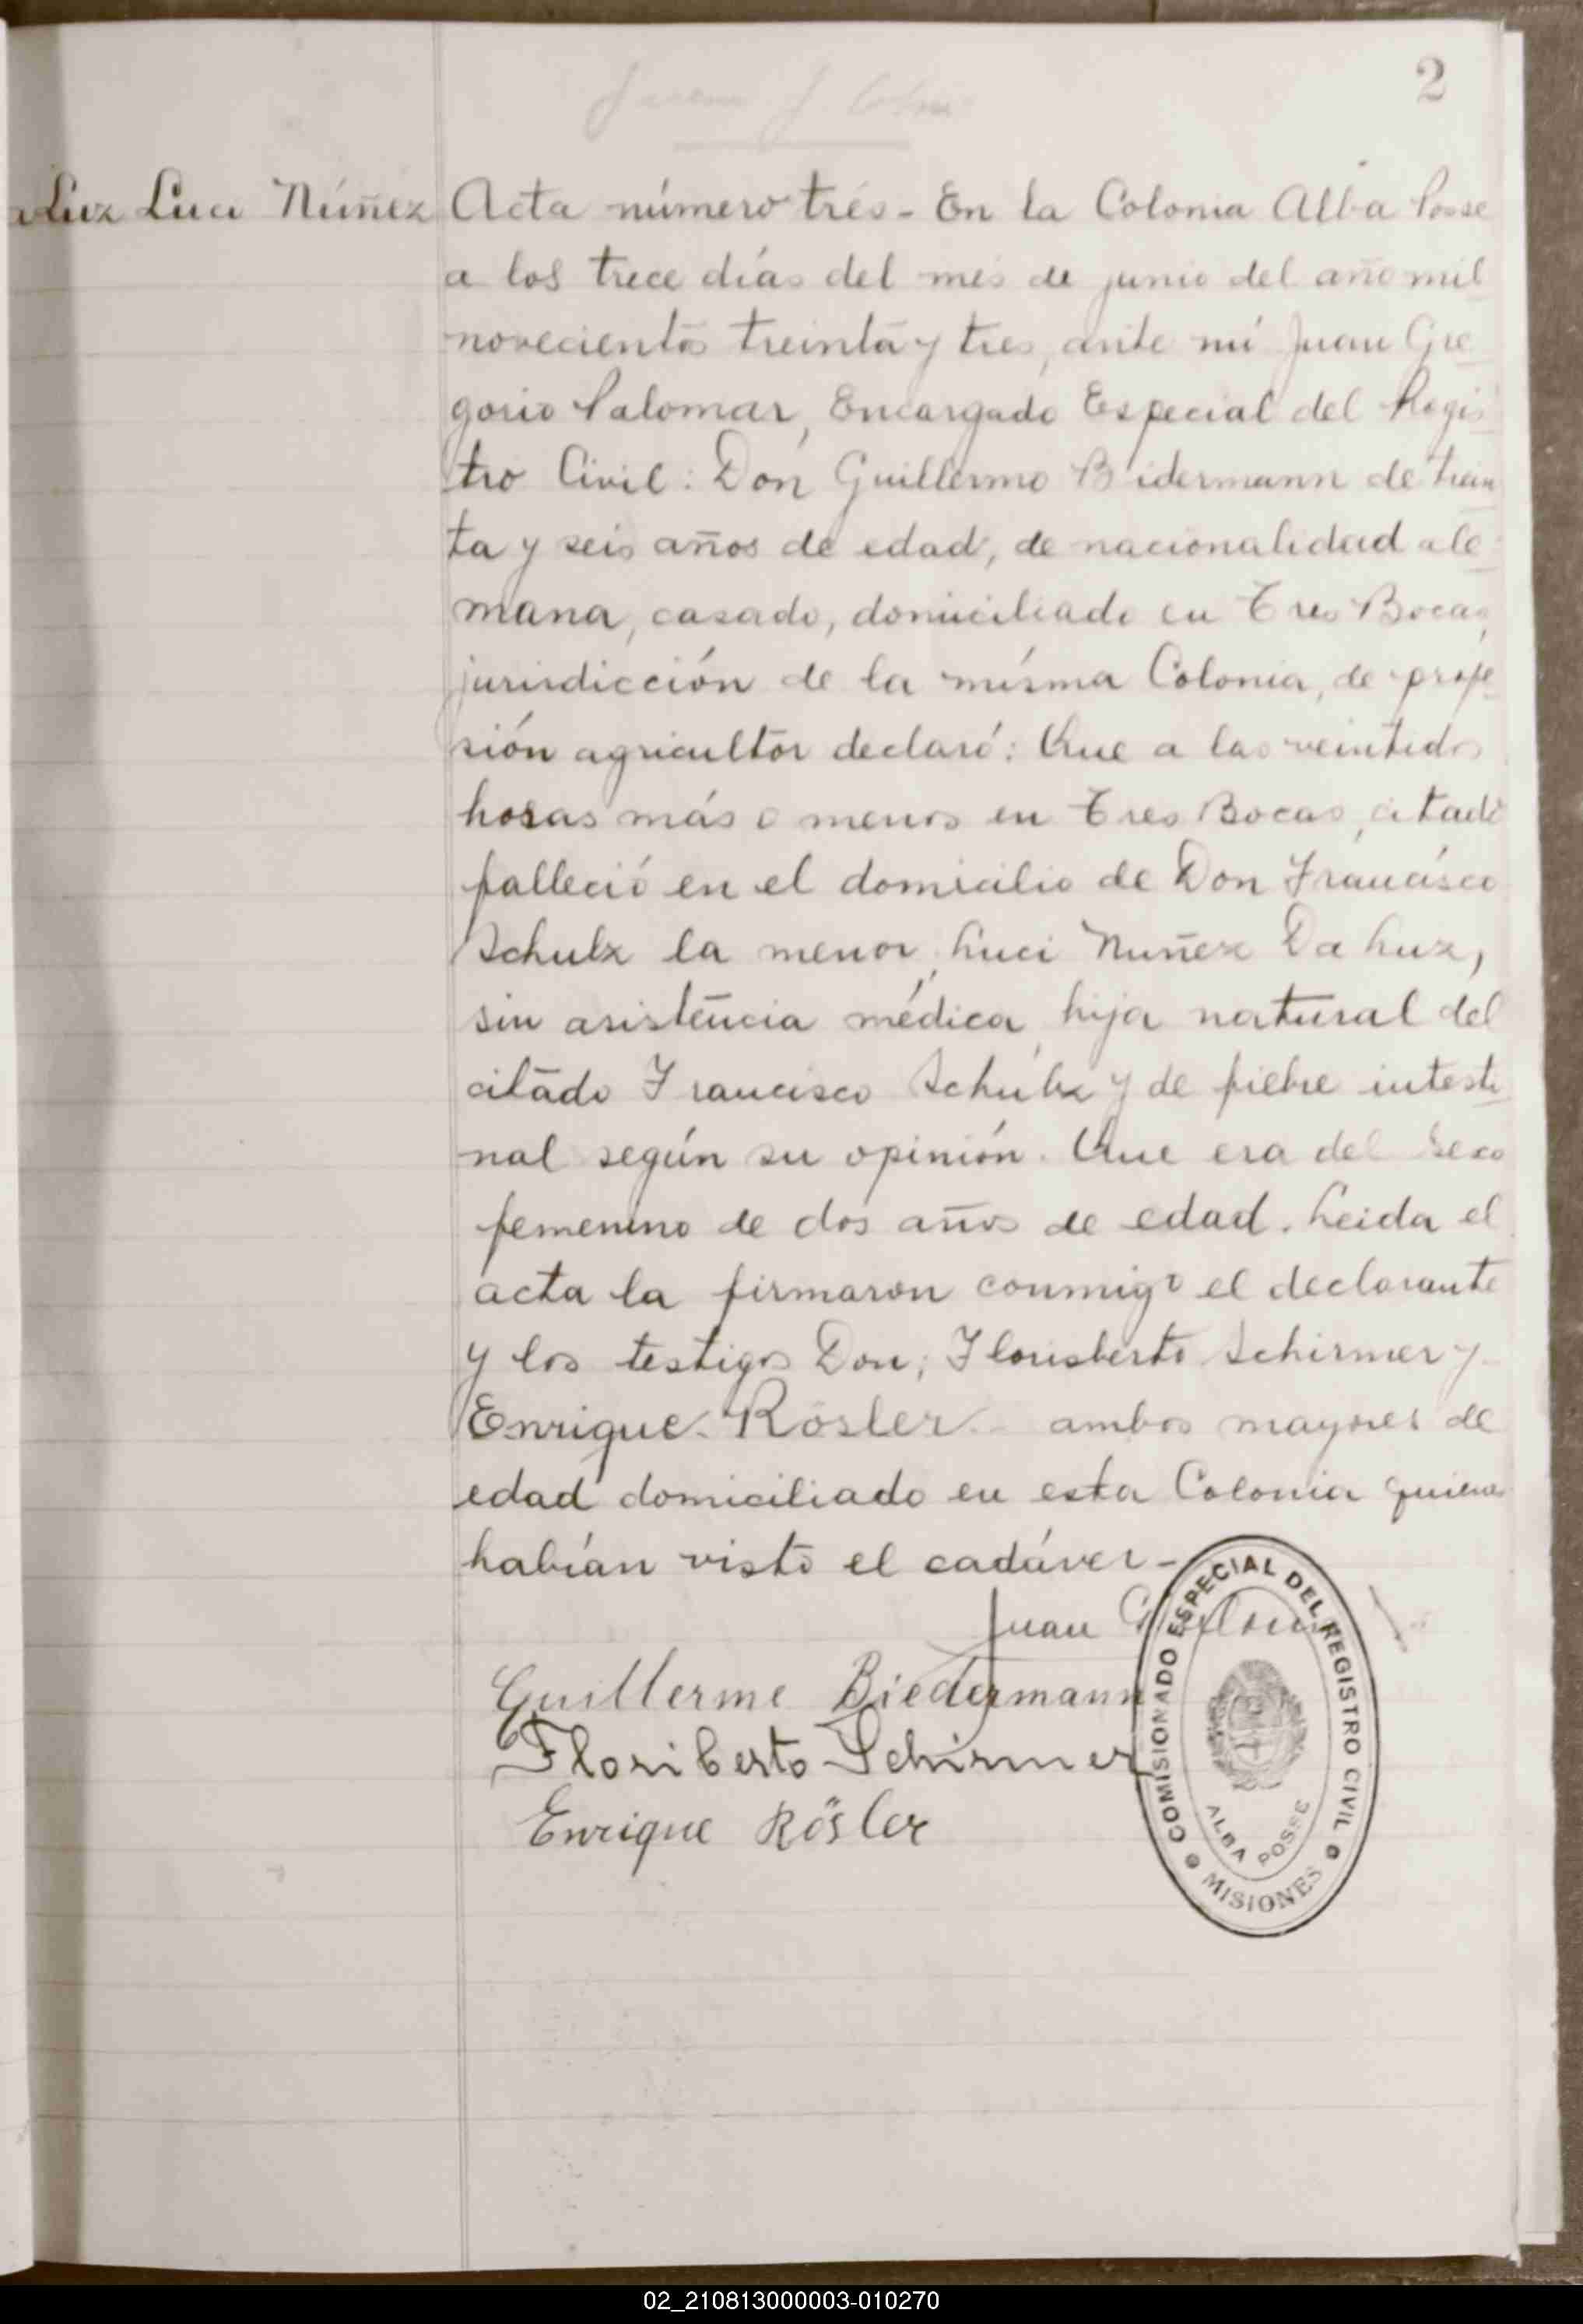 2
Luz Luci Núñez
Acta número trés - En la Colonia Alba Posse
a los trece días del més de junio del año mil
novecientos treinta y tres, ante mí Juan Gre-
gorio Palomar, Encargado Especial del Regis-
tro Civil: Don Guillermo Bidermann de trein
ta y seis años de edad, de nacionalidad ale-
mana, casado, domiciliado en Tres Bocas,
jurisdicción de la mísma Colonia, de profe-
sión agricultor declaró: Que a las veintidos
horas más o menos en Tres Bocas, citado
falleció en el domicilio de Don Francisco
Schulz la menor, Luci Nuñez Da Luz,
sin asistencia médica, hija natural del
citado Francisco Schulz y de fiebre intesti-
nal según su opinión. Que era del sexo
femenino de dos años de edad. Leida el
acta la firmaron conmigo el declarante
y los testigos Don; Florisberto Schirmer y
Enrique Rösler - ambos mayores de
edad domiciliado en esta Colonia quienes
habían visto el cadáver -
Juan G
Guillerme Biedermann
Floriberto Schirmer
Enrique Rösler
COMISIONADO ESPECIAL DEL REGISTRO CIVIL
ALBA POSSE
MISIONES
02_210813000003-010270